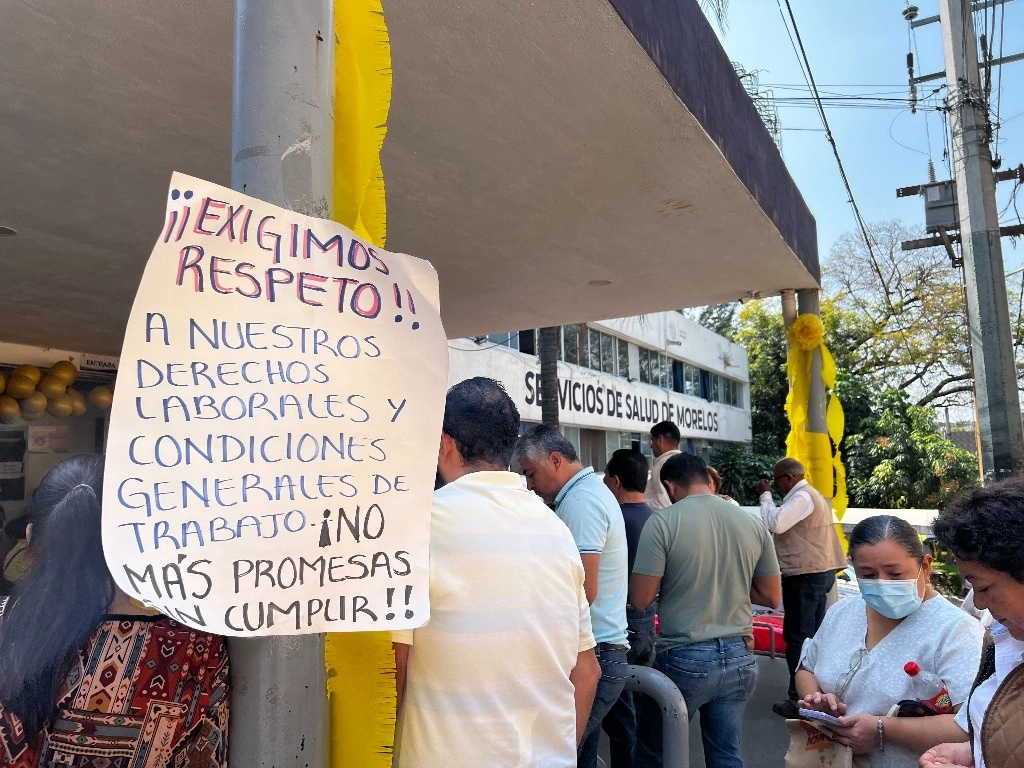 ¡¡EXIGIMOS
RESPETO!!
A NUESTROS
DERECHOS
LABORALES Y
CONDICIONES
GENERALES DE
TRABAJO. ¡NO
MÁS PROMESAS
CUMPLIR!!
ENTRADA
SERVICIOS DE SALUD DE MORELOS